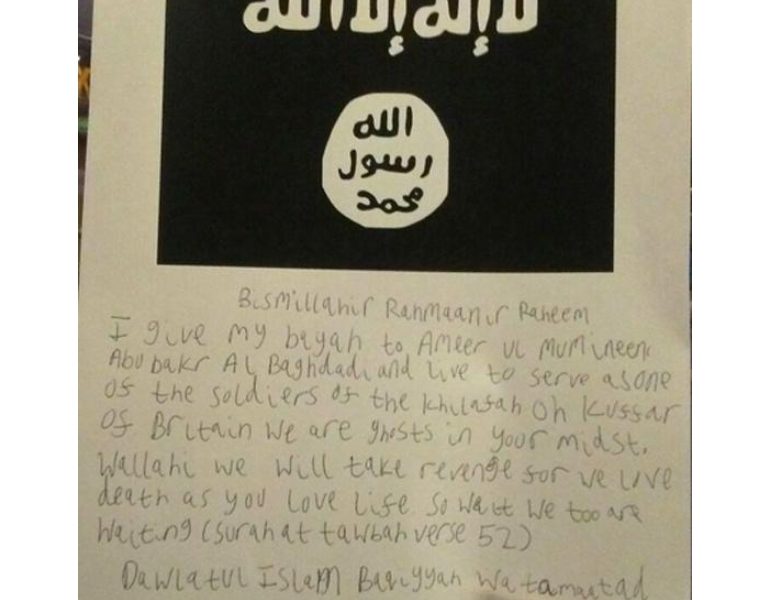 لا إله إلا الله
الله
رسول
محمد
Bismillahir Rahmaanir Raheem
I give my bayah to Ameer ul mumineen
Abu bakr Al Baghdadi and live to serve as one
of the soldiers of the khilafah oh kuffar
of Britain we are ghosts in your midst.
Wallahi we will take revenge for we love
death as you love life so wait we too are
waiting (surah at tawbah verse 52)
Dawlatul Islam Baqiyyah wa tamaatad